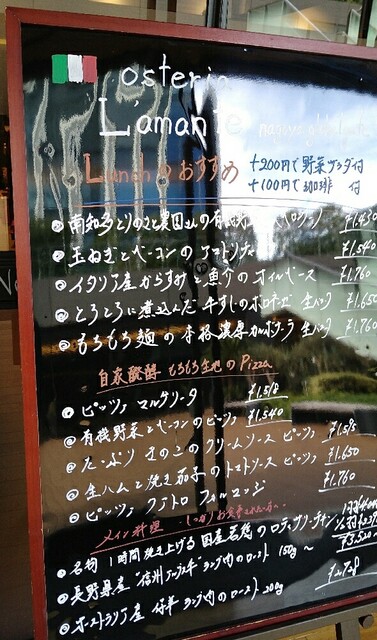 osteria
L'amante nagoya
Lunchのおすすめ
+200円で野菜サラダ付
+100円で珈琲 付
南知多とりのさと農園さんの有機野菜 ¥1,430
玉ねぎとベーコンのアマトリチャーナ ¥1,540
イタリア産からすみと魚介のオイルベース ¥1,760
とろとろに煮込んだ牛すじのボロネーゼ 生パスタ ¥1,650
もちもち麺の本格濃厚カルボナーラ 生パスタ ¥1,760
自家醗酵 もちもち生地のPizza
ピッツァ マルゲリータ ¥1,518
有機野菜とベーコンのピッツァ ¥1,540
たっぷりきのこのクリームソース ピッツァ ¥1,515
生ハムと焼き茄子のトマトソース ピッツァ ¥1,650
ピッツァ クアトロ フォルマッジ ¥1,760
メイン料理 しっかりお食事されたい方へ
名物 1時間焼き上げる国産若鶏のロティサリーチキン
長野県産 ラング肉のロースト 150g ~ ¥3,520~
オーストラリア産 仔羊 ラング肉のロースト 200g ¥2,728